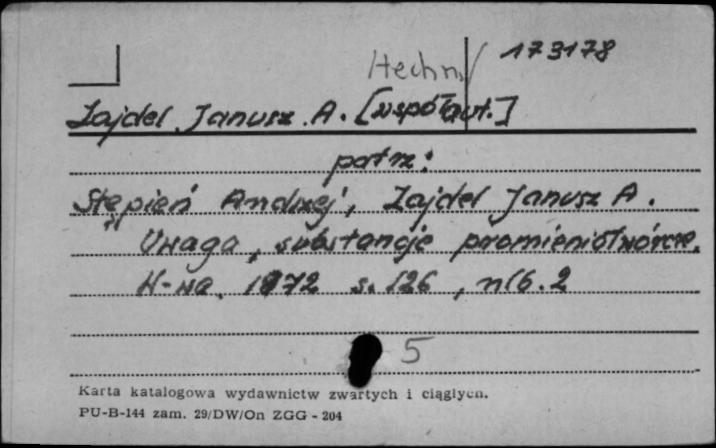 173178
Zajdel Janusz A. [współaut.]
patrz:
Stępień Andrzej, Zajdel Janusz A.
Uwaga, substancje promieniotwórcze.
W-wa 1972 s. 126,
5
Karta katalogowa wydawnictw zwartych i ciągłych.
PU-B-144 zam. 29/DW/On ZGG - 204